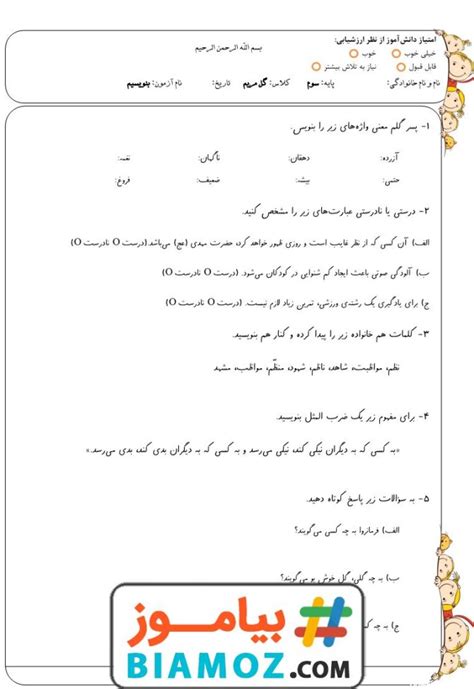 بسم الله الرحمن الرحیم
امتیاز دانش‌آموز از نظر ارزشیابی:
خیلی خوب خوب
قابل قبول نیاز به تلاش بیشتر
نام و نام خانوادگی: پایه: سوم کلاس: گل مریم تاریخ: نام آزمون: بنویسیم
۱- پسر گلم معنی واژه‌های زیر را بنویس.
آزرده: دهقان: ناگهان: نغمه:
حتمی: بیشه: ضعیف: فروغ:
۲- درستی یا نادرستی عبارت‌های زیر را مشخص کنید.
الف) آن کسی که از نظر غایب است و روزی ظهور خواهد کرد، حضرت مهدی (عج) می‌باشد.(درست O نادرست O)
ب) آلودگی صوتی باعث ایجاد کم شنوایی در کودکان می‌شود. (درست O نادرست O)
ج) برای یادگیری یک رشته‌ی ورزشی، تمرین زیاد لازم نیست. (درست O نادرست O)
۳- کلمات هم خانواده زیر را پیدا کرده و کنار هم بنویسید.
نظم، مواظبت، شاهد، ناظم، شهود، منظّم، مواظب، مشهد
۴- برای مفهوم زیر یک ضرب المثل بنویسید.
«به کسی که به دیگران نیکی کند، نیکی می‌رسد و به کسی که به دیگران بدی کند، بدی می‌رسد.»
۵- به سؤالات زیر پاسخ کوتاه دهید.
الف) فرمانروا به چه کسی می‌گویند؟
ب) به چه گلی، گل خوش بو می‌گویند؟
ج) به چه کسی
بیاموز
BIAMOZ.COM